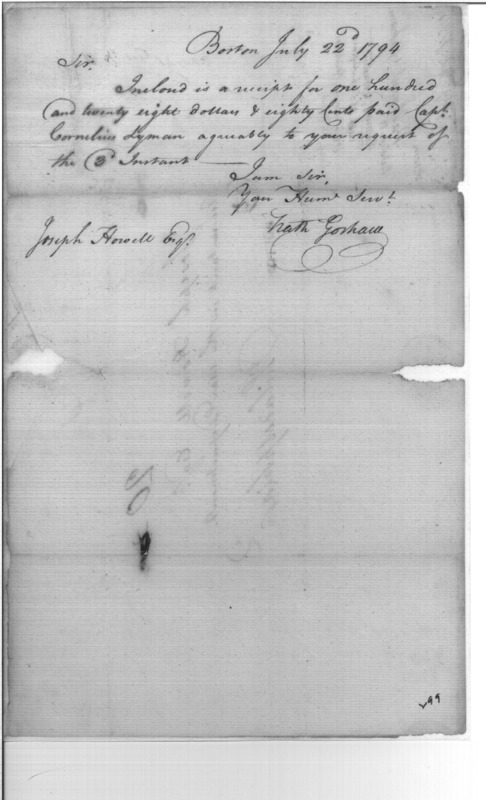 Boston July 22d 1794
Sir.
Inclosd is a receipt for one hundred
and twenty eight dollars & eighty Cents paid Capt.
Cornelius Lyman agreeably to your request of
the 3d Instant
I am Sir,
Your Humе Servt.
Nath Gorham
Joseph Howell Esqr.